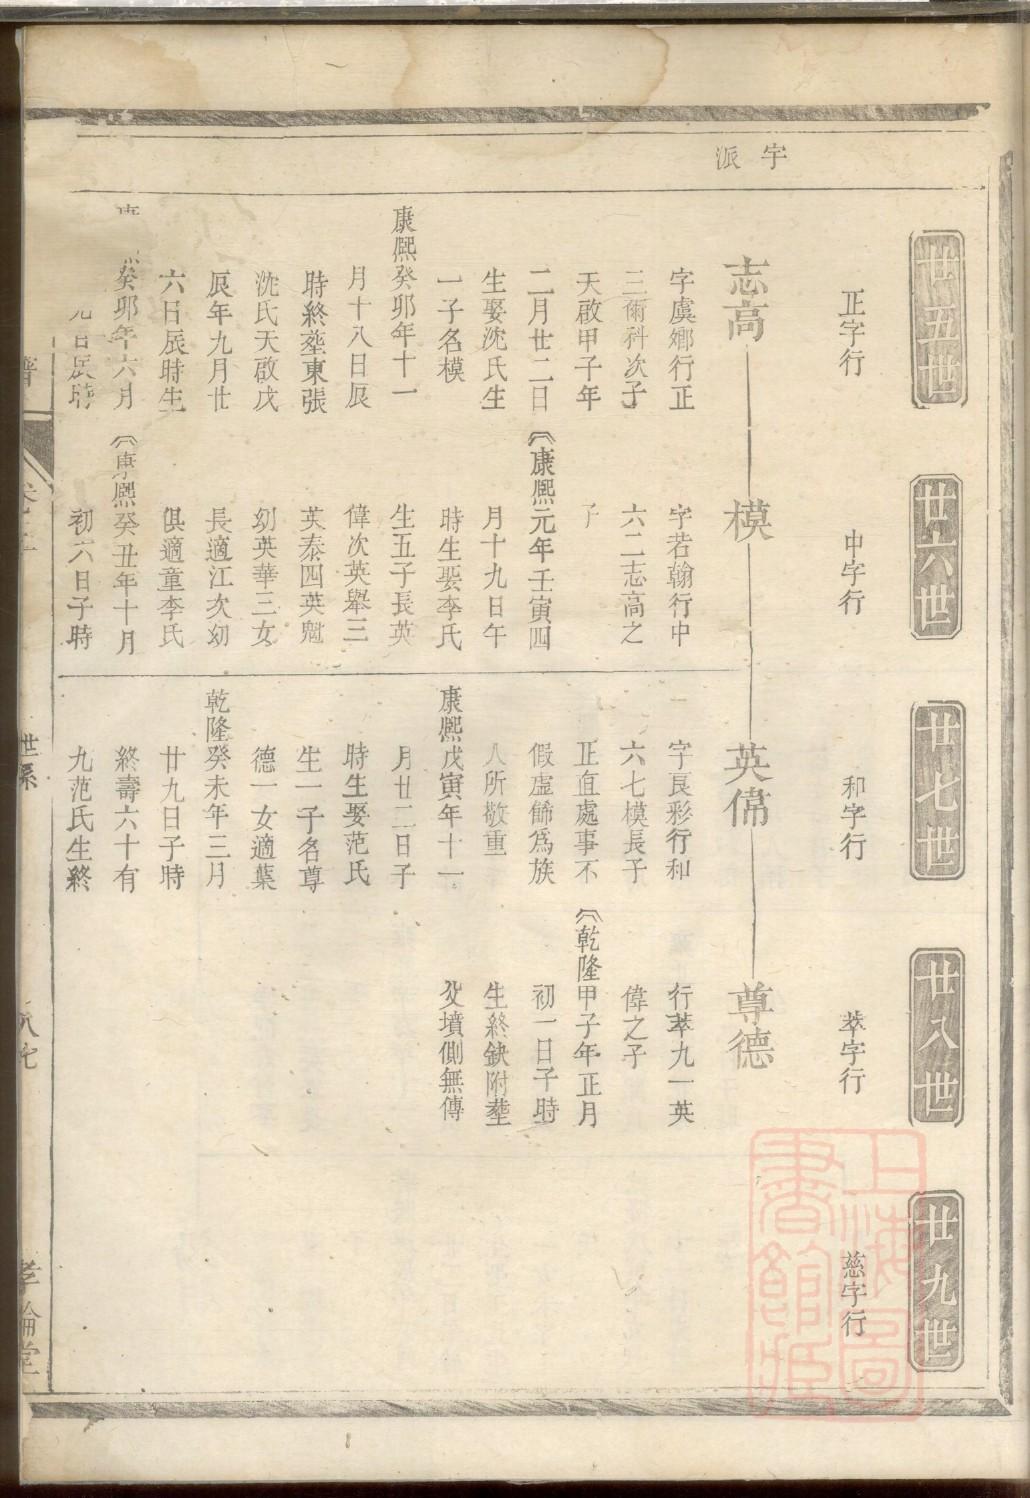 宇派
廿五世
正字行
志高
字虞鄉行正
三爾科次子
天啟甲子年
二月廿二日
生娶沈氏生
一子名模
康熙癸卯年十一
月十八日辰
時終塟東張
沈氏天啟戊
辰年九月廿
六日辰時生
癸卯年六月
日辰時
廿六世
中字行
模
字若翰行中
六二志高之
子
康熙元年壬寅四
月十九日午
時生娶李氏
生五子長英
偉次英舉三
英泰四英魁
幼英華三女
長適江次幼
俱適童李氏
康熙癸丑年十月
初六日子時
廿七世
和字行
英偉
字良彩行和
六七模長子
正直處事不
假虛飾爲族
人所敬重
康熙戊寅年十一
月廿二日子
時生娶范氏
生一子名尊
德一女適葉
乾隆癸未年三月
廿九日子時
終壽六十有
九范氏生終
廿八世
萃字行
尊德
行萃九一英
偉之子
乾隆甲子年正月
初一日子時
生終缺附塟
父墳側無傳
廿九世
慈字行
世系
上海圖書館藏